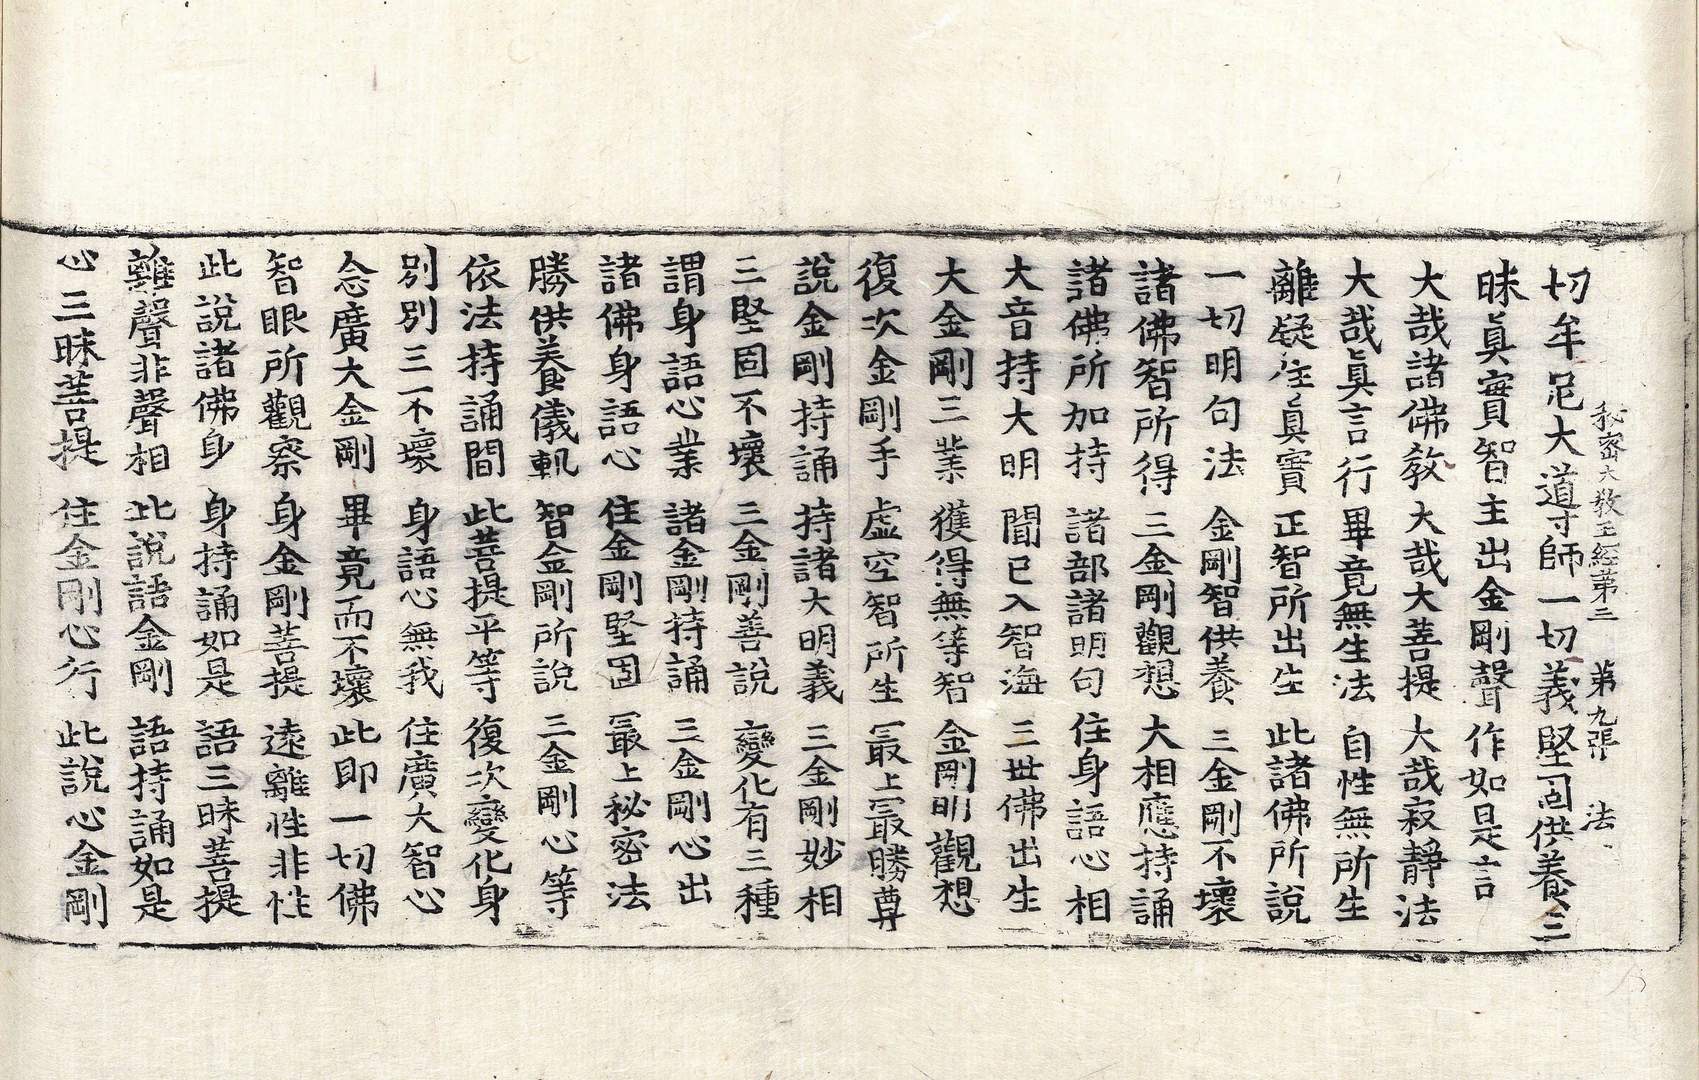 秘密大教王經第三　第九張　法
切牟尼大道寸師一切義堅固供養三
昧眞實智主出金剛聲作如是言
大哉諸佛教　大哉大菩提　大哉寂靜法
大哉眞言行　畢竟無生法　自性無所生
離疑注眞實　正智所出生　此諸佛所說
一切明句法　金剛智供養　三金剛不壞
諸佛智所得　三金剛觀想　大相應持誦
諸佛所加持　諸部諸明句　住身語心相
大音持大明　聞已入智海　三世佛出生
大金剛三業　獲得無等智　金剛明觀想
復次金剛手　虛空智所生　最上最勝尊
說金剛持誦　持諸大明義　三金剛妙相
三堅固不壞　三金剛善說　變化有三種
謂身語心業　諸金剛持誦　三金剛心出
諸佛身語心　住金剛堅固　最上秘密法
勝供養儀軌　智金剛所說　三金剛心等
依法持誦間　此菩提平等　復次變化身
別別三不壞　身語心無我　住廣大智心
念廣大金剛　畢竟而不壞　此即一切佛
智眼所觀察　身金剛菩提　遠離性非性
此說諸佛身　身持誦如是　語三昧菩提
離聲非聲相　此說語金剛　語持誦如是
心三昧菩提　住金剛心行　此說心金剛